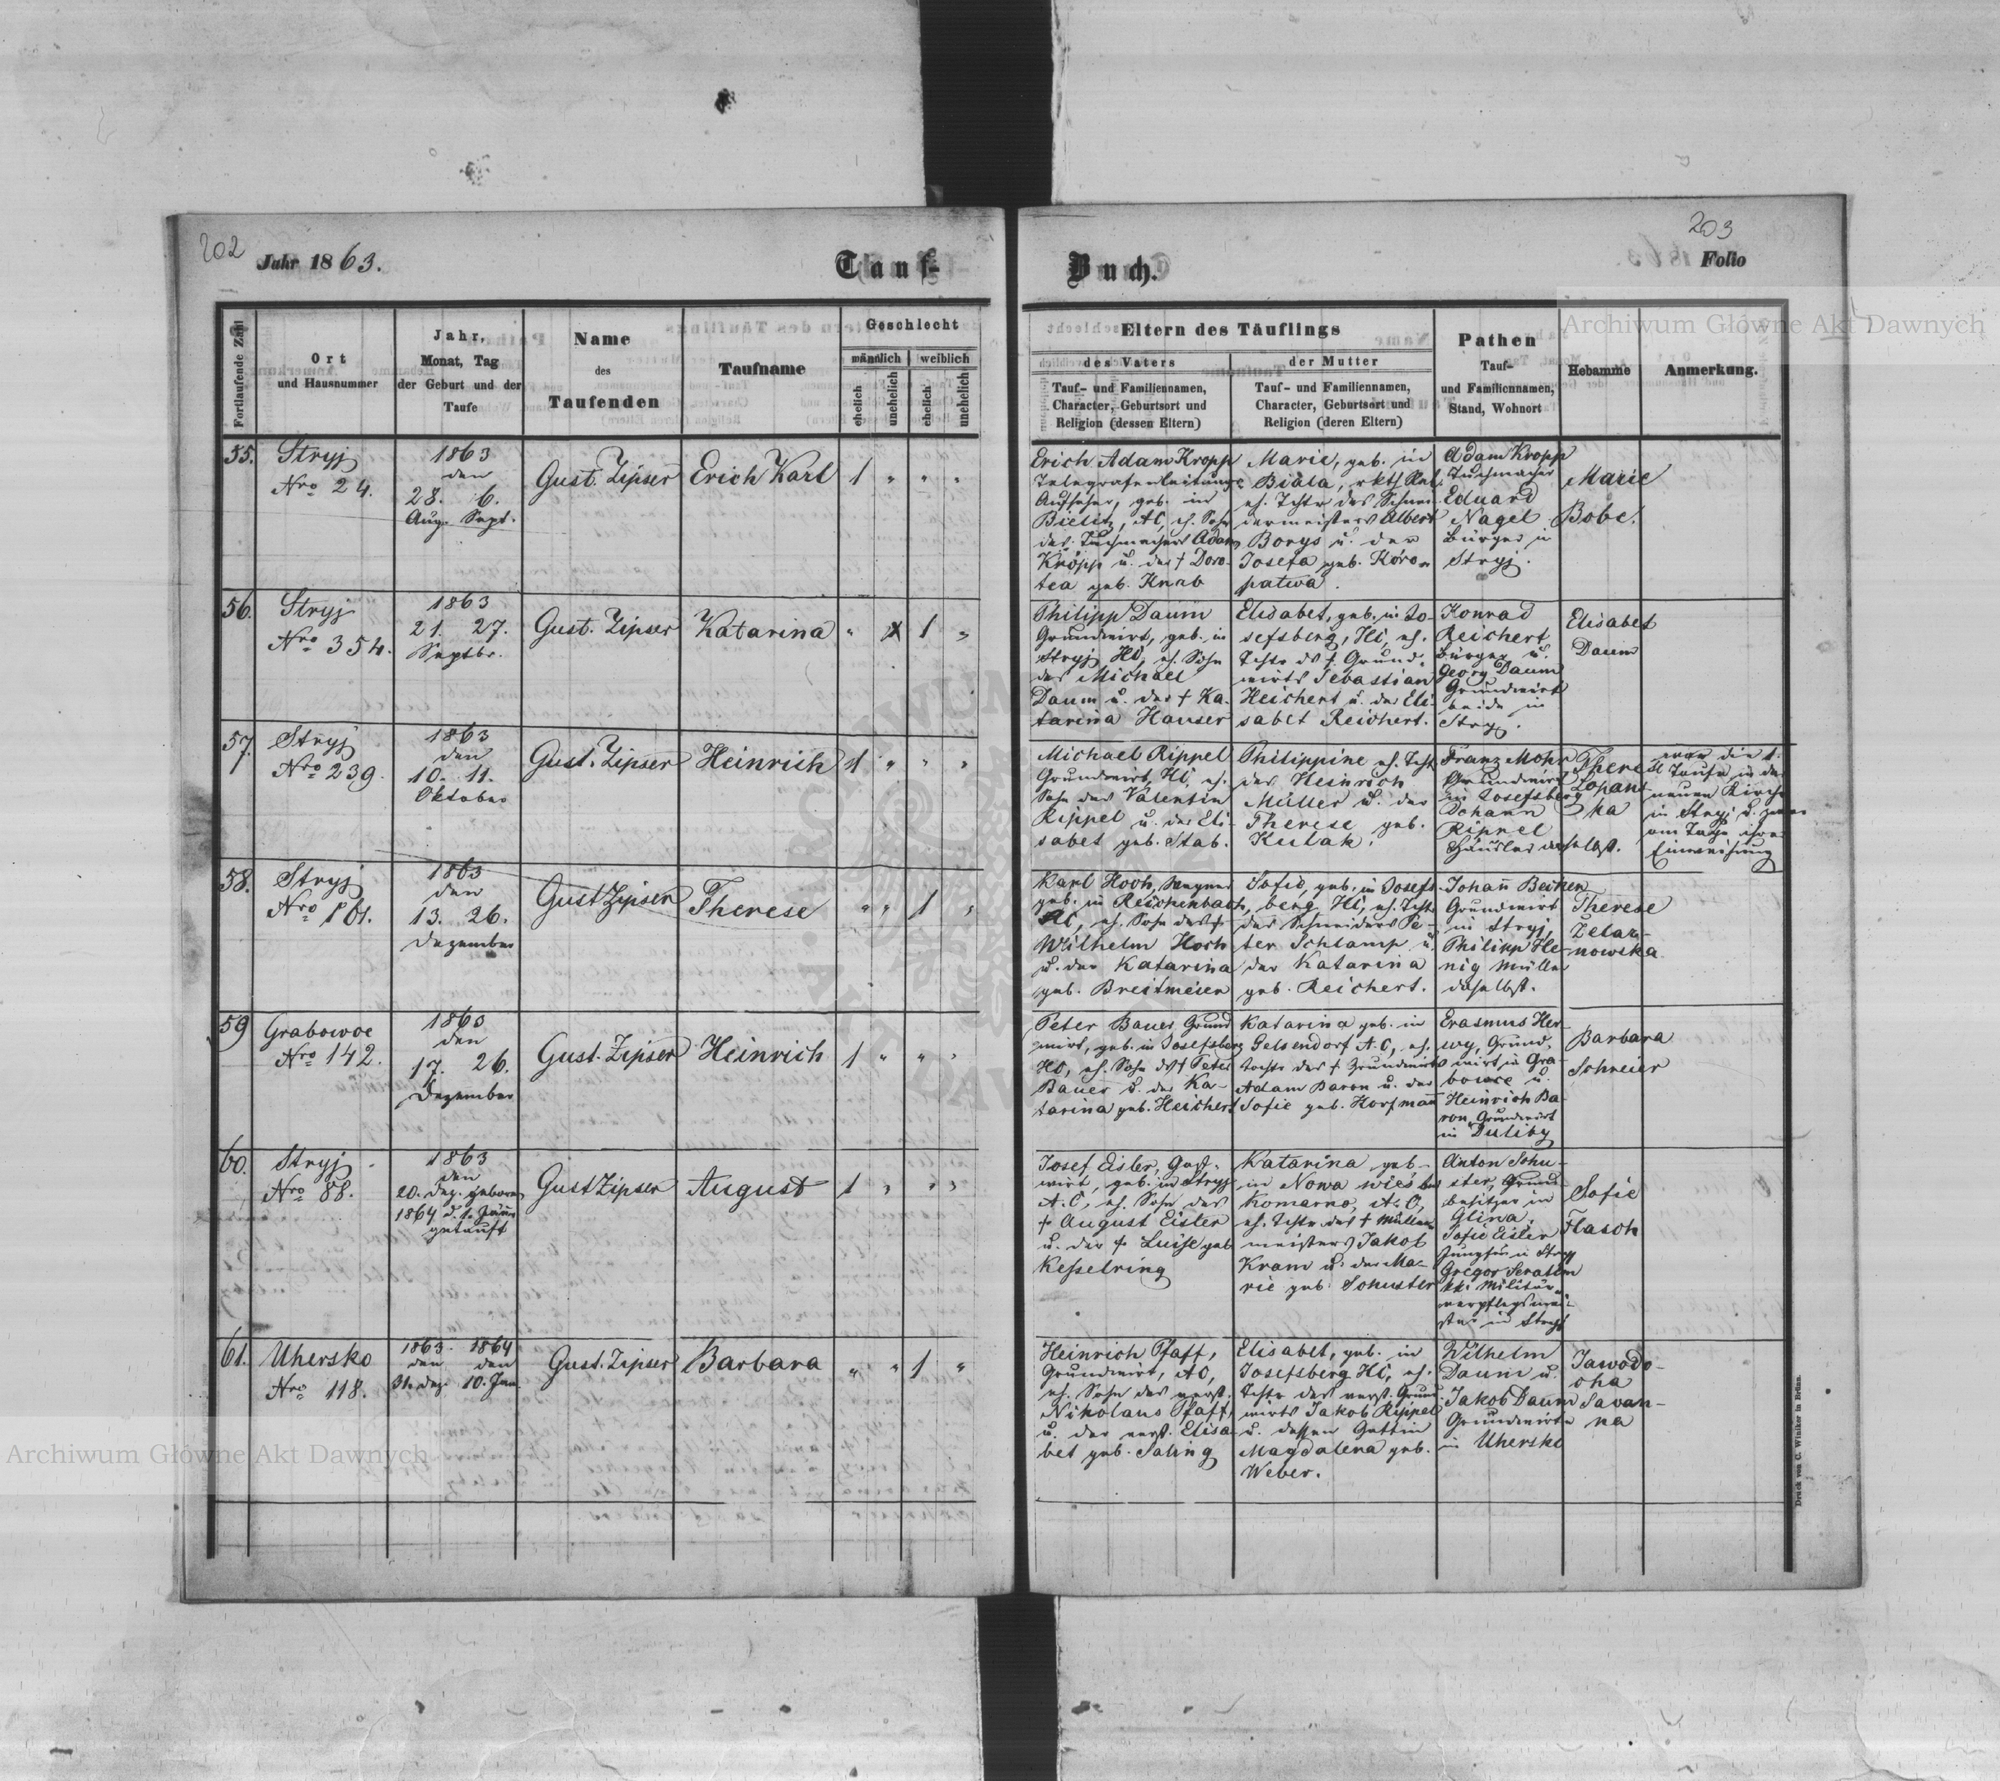 202
203
Jahr 1863.
Tauf-
Buch.
Folio
Archiwum Główne Akt Dawnych
Fortlaufende Zahl
Ort
und Hausnummer
Jahr,
Monat, Tag
der Geburt und der
Taufe
Name
des
Taufenden
Taufname
Geschlecht
männlich
weiblich
ehelich
unehelich
ehelich
unehelich
Eltern des Täuflings
des Vaters
Tauf- und Familiennamen,
Character, Geburtsort und
Religion (dessen Eltern)
der Mutter
Tauf- und Familiennamen,
Character, Geburtsort und
Religion (deren Eltern)
Pathen
Tauf-
und Familiennamen,
Stand, Wohnort
Hebamme
Anmerkung.
55.
Stryj
Nro 24.
1863
den
28. 6.
Aug. Sept.
Gust. Zipser
Erich Karl
1 " " "
Erich Adam Kropp
Telegrafenleitungs
Aufseher, geb. in
Bielitz, AC, eh. Sohn
des Tuchmachers Adam
Kropp u. der † Doro-
tea geb. Knab
Marie, geb. in
Biala, rkth Rel.
eh. Tchtr des Schnei-
dermeisters Albert
Borys u. der
Josefa geb. Koro-
patwa.
Adam Kropp
Tuchmacher
Eduard
Nagel
Bürger in
Stryj.
Marie
Bobe.
56.
Stryj
Nro 354.
1863
21. 27.
Septbr.
Gust. Zipser
Katarina
" 1 "
Philipp Daum
Grundwirt, geb. in
Stryj HC, eh. Sohn
des Michael
Daum u. der † Ka-
tarina Hauser
Elisabet, geb. in Jo-
sefsberg, HC, eh.
Tchtr ds † Grund-
wirts Sebastian
Reichert u. der Eli-
sabet Reichert.
Konrad
Reichert
Bürger u.
Georg Daum
Grundwirt
beide in
Stryj.
Elisabet
Daum
57.
Stryj
Nro 239.
1863
den
10. 11.
Oktober
Gust. Zipser
Heinrich
1 " " "
Michael Rippel
Grundwirt, HC, eh.
Sohn des Valentin
Rippel u. der Eli-
sabet geb. Stab.
Philippine eh. Tcht
des Heinrich
Müller u. der
Therese geb.
Kulak.
Franz Mohr
Grundwirt
in Josefsberg
Johann
Rippel
Häusler daselbst.
Therese
Lopans-
ka
war die 1.
Taufe in der
neuen Kirche
in Stryj u. zwar
am Tage ihrer
Einweihung
58.
Stryj
Nro 161.
1863
den
13. 26.
Dezember
Gust Zipser
Therese
" " 1 "
Karl Hoch, Wagner
geb. in Reichenbach,
HC, eh. Sohn des †
Wilhelm Hoch
u. der Katarina
geb. Breitmeier
Sofie, geb. in Josefs-
berg HC, eh. Tcht
des Schneiders Pe-
ter Schlamp u.
der Katarina
geb. Reichert.
Johann Becker
Grundwirt
in Stryj,
Philipp He-
nig Müller
daselbst.
Therese
Zelar-
nowska
59
Grabowce
Nro 142.
1863
den
17. 26.
Dezember
Gust. Zipser
Heinrich
1 " " "
Peter Bauer, Grund
wirt, geb. in Josefsberg
HC, eh. Sohn ds † Peter
Bauer u. der Ka-
tarina geb. Reichert
Katarina geb. in
Gelsendorf A.C, eh.
Tochtr des † Grundwirts
Adam Baron u. der
Sofie geb. Horfmann
Erasmus Her-
wy, Grund-
wirt in Gra-
bowce u.
Heinrich Ba-
ron, Grundwirt
in Duliby
Barbara
Schreier
60.
Stryj
Nro 88.
1863
den
20. Dez. geboren
1864 d. 1. Jänn
getauft
Gust Zipser
August
1 " " "
Josef Eisler, Gast-
wirt, geb. in Stryj
A.C, eh. Sohn des
† August Eisler
u. der † Luise geb
Kesselring
Katarina geb.
in Nowa wies bei
Komarno, A.C,
eh. Tchtr des † Müller-
meisters Jakob
Kram u. der Ma-
rie geb. Schuster
Anton Schu-
ster, Grund-
besitzer in
Glina,
Sofie Eisler
Jungfer in Stryj
Gregor Serafim
kk. Militär-
verpflegsmei-
ster in Stryj
Sofie
Flasch
61.
Uhersko
Nro 118.
1863. 1864
den den
31. Dez. 10. Jan.
Gust. Zipser
Barbara
" " 1 "
Heinrich Pfaff,
Grundwirt, AC,
eh. Sohn des verst.
Nikolaus Pfaff,
u. der verst. Elisa-
bet geb. Saling
Elisabet, geb. in
Josefsberg HC, eh.
Tchtr des verst. Grund-
wirts Jakob Rippel
u. dessen Gattin
Magdalena geb.
Weber.
Wilhelm
Daum u.
Jakob Daum
Grundwirte
in Uhersko
Jawodo-
cha
Savan-
na
Archiwum Główne Akt Dawnych
Druck von C. Winiker in Brünn.